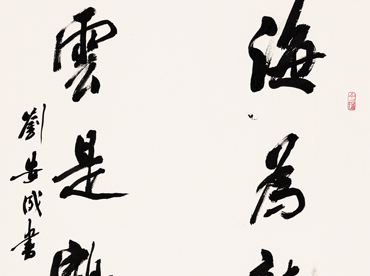 海為
雲是
劉安成書